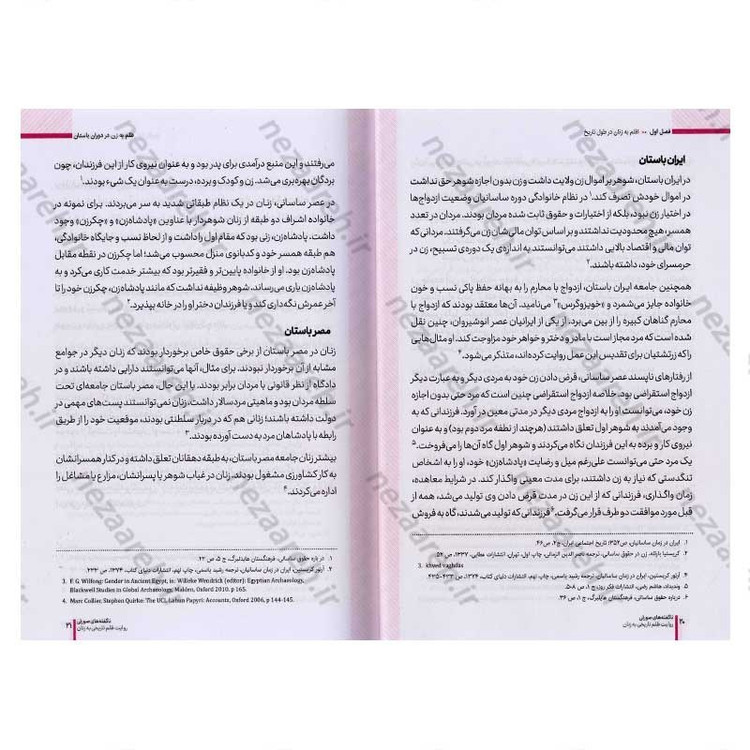 فصل اول •• ظلم به زنان در طول تاریخ
ایران باستان
در ایران باستان، شوهر بر اموال زن ولایت داشت و زن بدون اجازه شوهر حق نداشت
در اموال خودش تصرف کند.¹ در نظام خانوادگی دوره ساسانیان وضعیت ازدواج‌ها
در اختیار زن نبود، بلکه از اختیارات و حقوق ثابت شده مردان بودند. مردان در تعدد
همسر، هیچ محدودیت نداشتند و بر اساس توان مالی‌شان زن می‌گرفتند. مردانی که
توان مالی و اقتصاد بالایی داشتند می‌توانستند به اندازه‌ی یک دوره‌ی تسبیح، زن در
حرمسرای خود، داشته باشند.²
همچنین جامعه ایران باستان، ازدواج با محارم را به بهانه حفظ پاکی نسب و خون
خانواده جایز می‌شمرد و «خویزوگرس»³ می‌نامید. آن‌ها معتقد بودند که ازدواج با
محارم گناهان کبیره را از بین می‌برد. از یکی از ایرانیان عصر انوشیروان، چنین نقل
شده است که مرد مجاز است با مادر و دختر و خواهر خود مزاوجت کند. او مثال‌هایی
را که زرتشتیان برای تقدیس این عمل روایت کرده‌اند، متذکر می‌شود.⁴
از رفتارهای ناپسند عصر ساسانی، قرض دادن زن خود به مردی دیگر و به عبارت دیگر
ازدواج استقراضی بود. خلاصه ازدواج استقراضی چنین است که مرد حتی بدون اجازه
زن خود، می‌توانست او را به ازدواج مردی دیگر در مدتی معین در آورد. فرزندانی که به
وجود می‌آمدند به شوهر اول تعلق داشتند (هرچند از نطفه مرد دوم بود) و به عنوان
نیروی کار و برده به این فرزندان نگاه می‌کردند و شوهر اول گاه آن‌ها را می‌فروخت.⁵
یک مرد حتی می‌توانست علی‌رغم میل و رضایت «پادشاه‌زن» خود، او را به اشخاص
تنگدستی که نیاز به زن داشتند، برای مدت معینی واگذار کند. در شرایط معاهده،
زمان واگذاری، فرزندانی که از این زن در مدت قرض دادن وی تولید می‌شد، همه از
قبل مورد موافقت دو طرف قرار می‌گرفت.⁶ فرزندانی که تولید می‌شدند، گاه به فروش
۱. ایران در زمان ساسانیان، ص۳۵۲؛ تاریخ اجتماعی ایران، ج۲، ص۴۶.
۲. کریستیا بارتله، زن در حقوق ساسانی، ترجمه ناصر الدین الزمانی، چاپ اول، تهران، انتشارات عطایی، ۱۳۳۷، ص ۵۲
3. khwed vaghdas
۴. آرتور کریستین، ایران در زمان ساسانیان، ترجمه رشید یاسمی، چاپ نهم، انتشارات دنیای کتاب، ۱۳۷۴، ص ۴۳۳-۴۳۵
۵. وندیداد، هاشم رضی، انتشارات فکر روز، ج ۱، ص ۵۰۸.
۶. درباره حقوق ساسانی، فرهنگستان هایدلبرگ، ج ۱، ص ۳۶.
۲۰
ناگفته‌های صورتی
روایت ظلم تاریخی به زنان
ظلم به زن در دوران باستان
می‌رفتند و این منبع درآمدی برای پدر بود و به عنوان نیروی کار از این فرزندان، چون
بردگان بهره‌بری می‌شد. زن و کودک و برده، درست به عنوان یک شیء بودند.¹
در عصر ساسانی، زنان در یک نظام طبقاتی شدید به سر می‌بردند. برای نمونه در
خانواده اشراف دو طبقه از زنان شوهردار با عناوین «پادشاه‌زن» و «چکرزن» وجود
داشت. پادشاه‌زن، زنی بود که مقام اول را داشت و از لحاظ نسب و جایگاه خانوادگی،
هم طبقه همسر خود و کدبانوی منزل محسوب می‌شد؛ اما چکرزن در نقطه مقابل
پادشاه‌زن بود. او از خانواده پایین‌تر و فقیرتر بود که بیشتر خدمت کاری می‌کرد و به
پادشاه‌زن یاری می‌رساند. شوهر وظیفه نداشت که مانند پادشاه‌زن، چکرزن خود را تا
آخر عمرش نگه‌داری کند و یا فرزندان دختر او را در خانه بپذیرد.²
مصر باستان
زنان در مصر باستان از برخی حقوق خاص برخوردار بودند که زنان دیگر در جوامع
مشابه از آن برخوردار نبودند. برای مثال، آنها می‌توانستند دارایی داشته باشند و در
دادگاه از نظر قانونی با مردان برابر بودند. با این حال، مصر باستان جامعه‌ای تحت
سلطه مردان بود و ماهیتی مردسالار داشت. زنان نمی‌توانستند پست‌های مهمی در
دولت داشته باشند؛ زنانی هم که در دربار سلطنتی بودند، موقعیت خود را از طریق
رابطه با پادشاهان مرد به دست آورده بودند.³
بیشتر زنان جامعه مصر باستان، به طبقه دهقانان تعلق داشته و در کنار همسرانشان
به کار کشاورزی مشغول بودند. زنان در غیاب شوهر یا پسرانشان، مزارع یا مشاغل را
اداره می‌کردند.⁴
۱. درباره حقوق ساسانی، فرهنگستان هایدلبرگ، ج ۵، ص ۲۲.
۲. آرتور کریستین، ایران در زمان ساسانیان، ترجمه رشید یاسمی، چاپ نهم، انتشارات دنیای کتاب، ۱۳۷۴، ص ۴۳۳.
3. F. G. Wilfong: Gender in Ancient Egypt, in: Willeke Wendrich (editor): Egyptian Archaeology,
Blackwell Studies in Global Archaeology, Malden, Oxford 2010. p 165.
4. Marc Collier, Stephen Quirke: The UCL Lahun Papyri: Accounts, Oxford 2006, p 144-145.
ناگفته‌های صورتی
روایت ظلم تاریخی به زنان
۲۱
nezaareh.ir